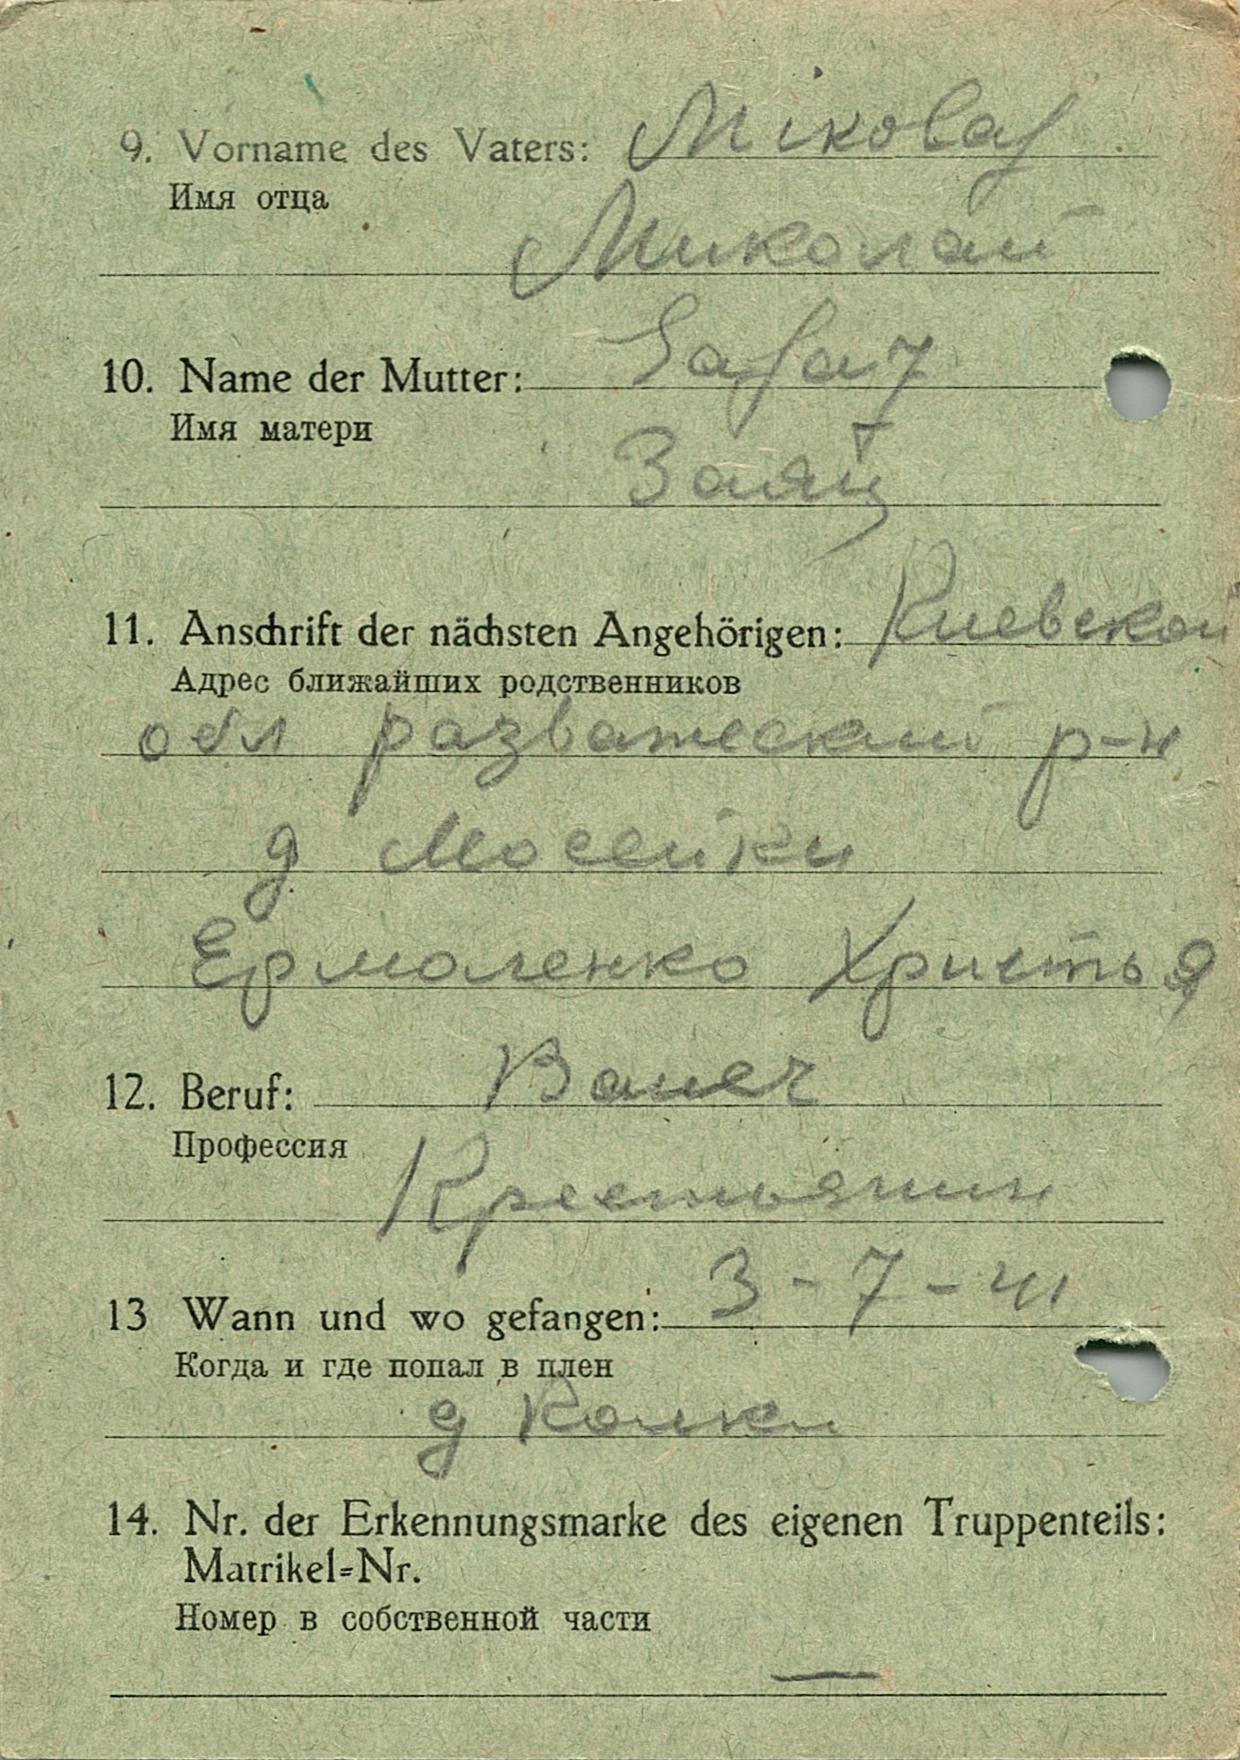 9. Vorname des Vaters: Mikolaj
Имя отца
Миколай
10. Name der Mutter:
Имя матери
Заяц
11. Anschrift der nächsten Angehörigen: Киевской
Адрес ближайших родственников
обл розважеский р-н
д Мосейки
Ермоленко Христья
12. Beruf: Bauer
Профессия
Крестьянин
13 Wann und wo gefangen: 3-7-41
Когда и где попал в плен
д Колки
14. Nr. der Erkennungsmarke des eigenen Truppenteils:
Matrikel-Nr.
Номер в собственной части
—